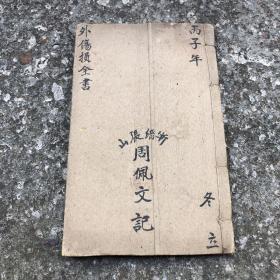 丙子年
冬立
張山
周佩文記
外傷損全書